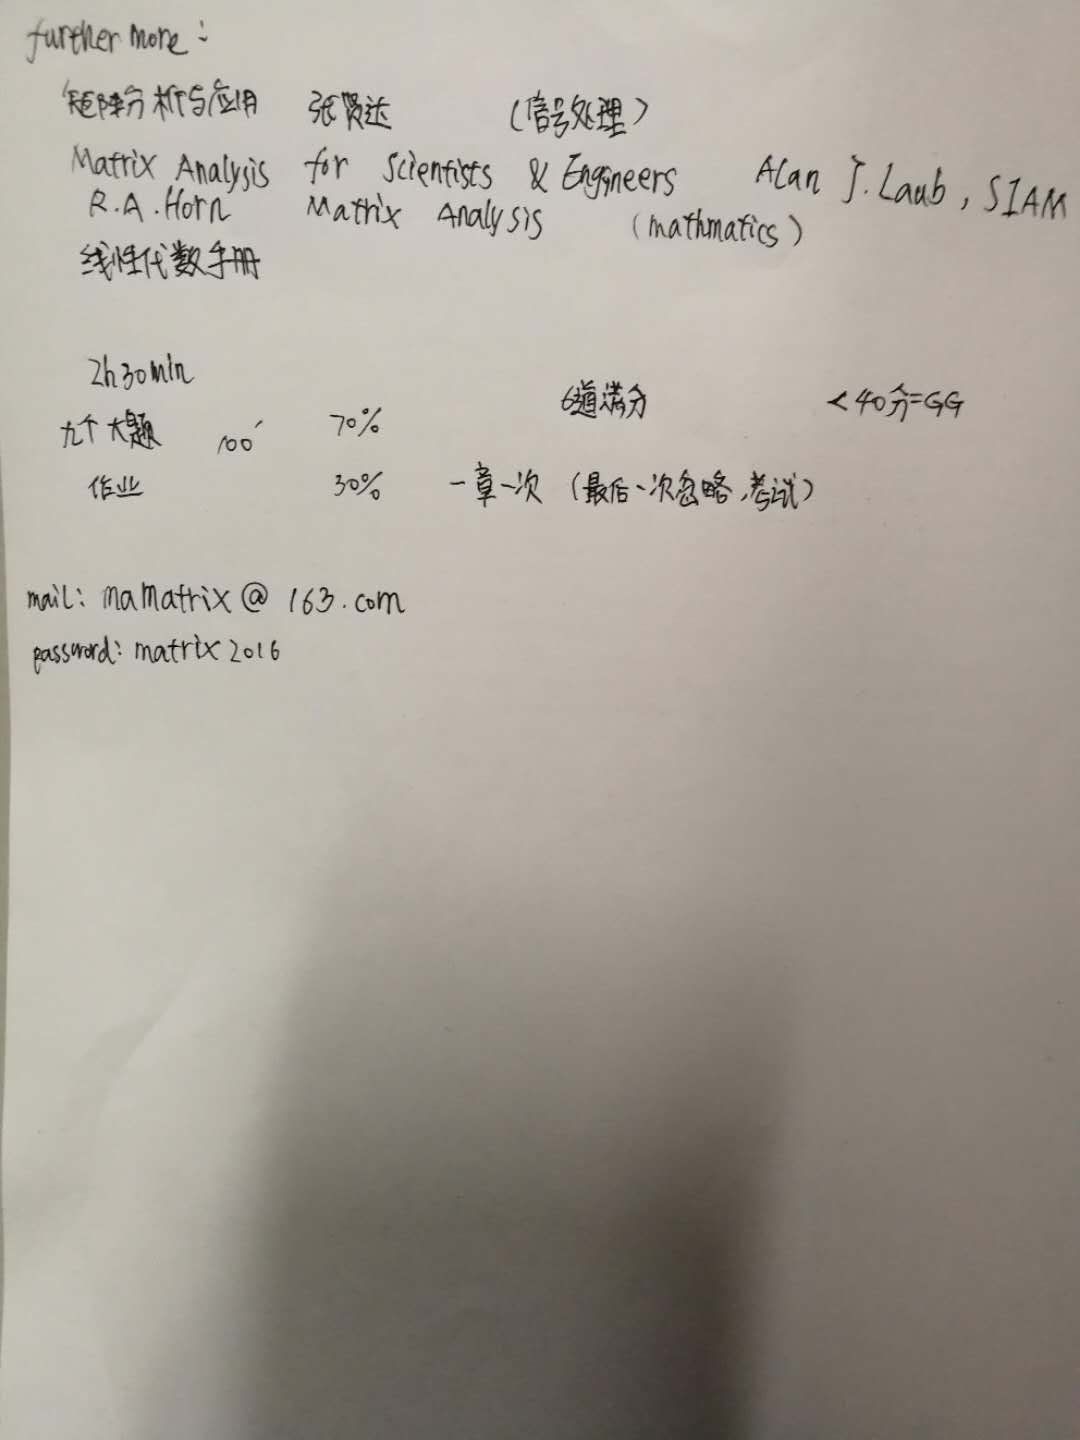 further more:
矩阵分析与应用 张贤达 (信号处理)
Matrix Analysis for Scientists & Engineers Alan J. Laub, SIAM
R.A.Horn Matrix Analysis (mathmatics)
线性代数手册
2h30min
九个大题 100' 70% 6道满分 <40分=GG
作业 30% 一章一次 (最后一次忽略,考试)
mail: mamatrix@163.com
password: matrix2016